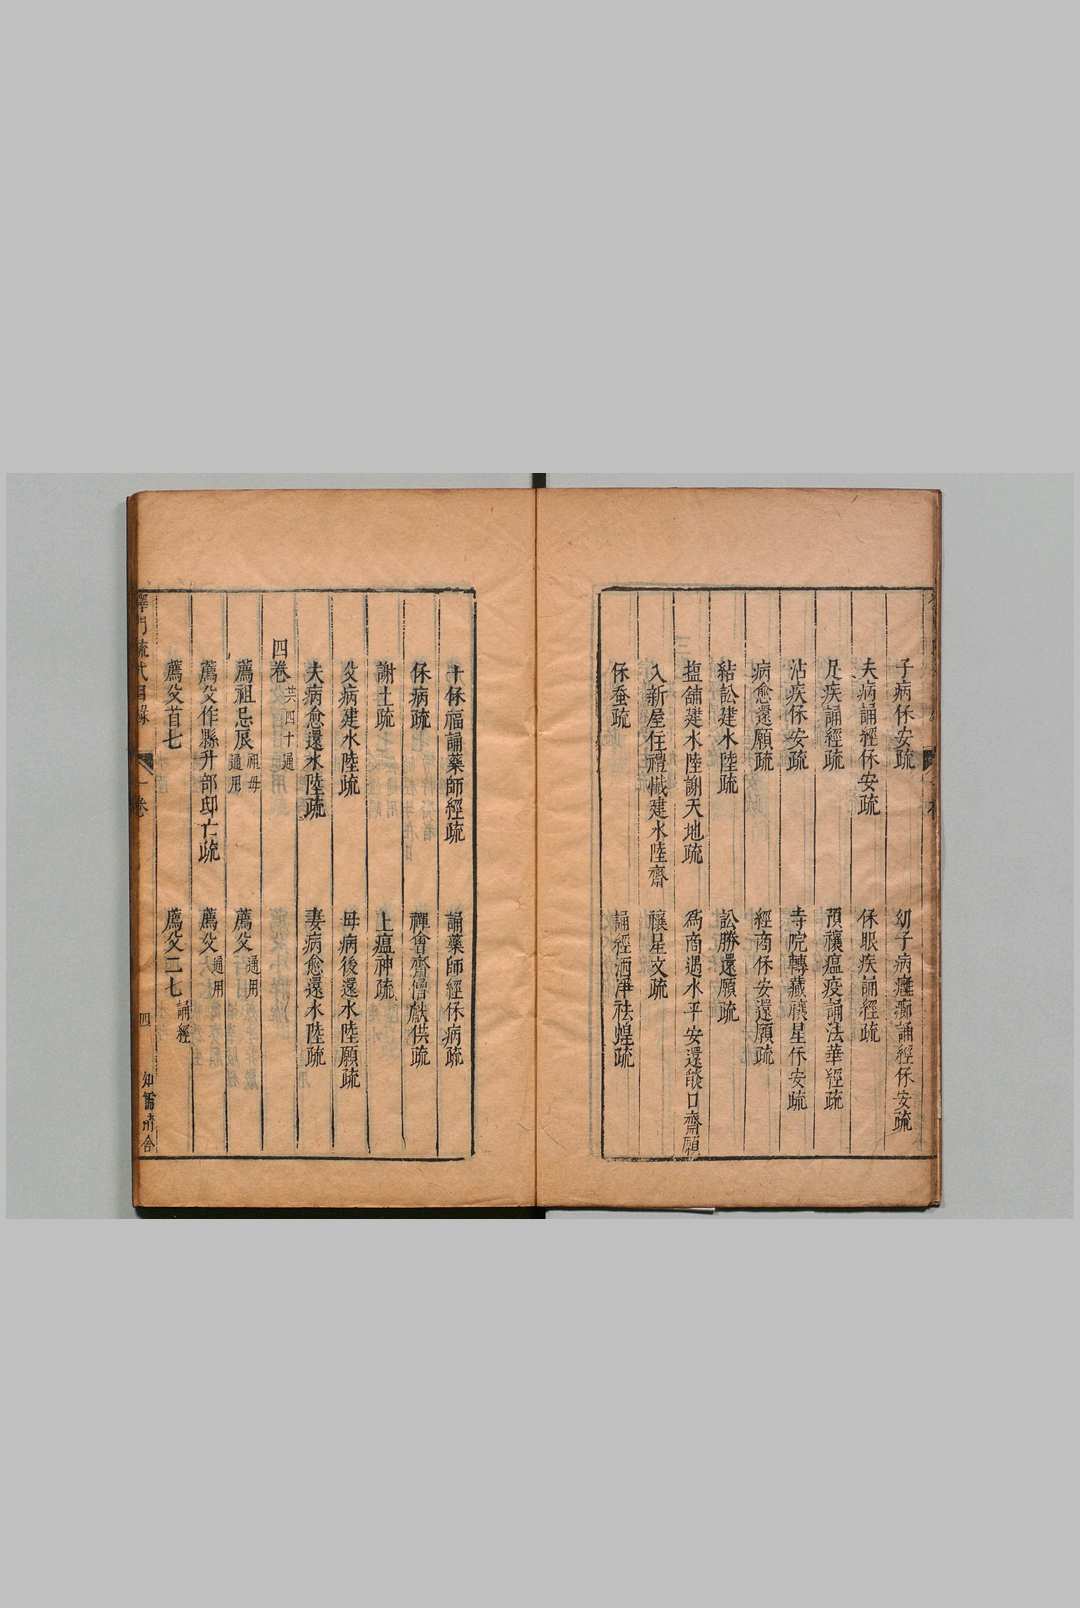 子病保安疏　幼子病癰瘹誦經保安疏
夫病誦經保安疏　保眼疾誦經疏
足疾誦經疏　預禳瘟疫誦法華經疏
沾疾保安疏　寺院轉藏禳星保安疏
病愈還願疏　經商保安還願疏
結訟建水陸疏　訟勝還願疏
塩舖建水陸謝天地疏　為商遇水平安還燄口齋願
入新屋住禮懺建水陸齋　禳星文疏
保蚕疏　誦經洒淨祛蝗疏
卜保福誦藥師經疏　誦藥師經保病疏
保病疏　禪會齋僧獻供疏
謝土疏　上瘟神疏
父病建水陸疏　母病後還水陸願疏
夫病愈還水陸疏　妻病愈還水陸疏
四卷 共四十通
薦祖忌辰 祖母通用　薦父 通用
薦父作縣升部卽亡疏　薦父 通用
薦父首七　薦父二七 誦經
釋門疏式目錄　一卷　四　知儒精舍